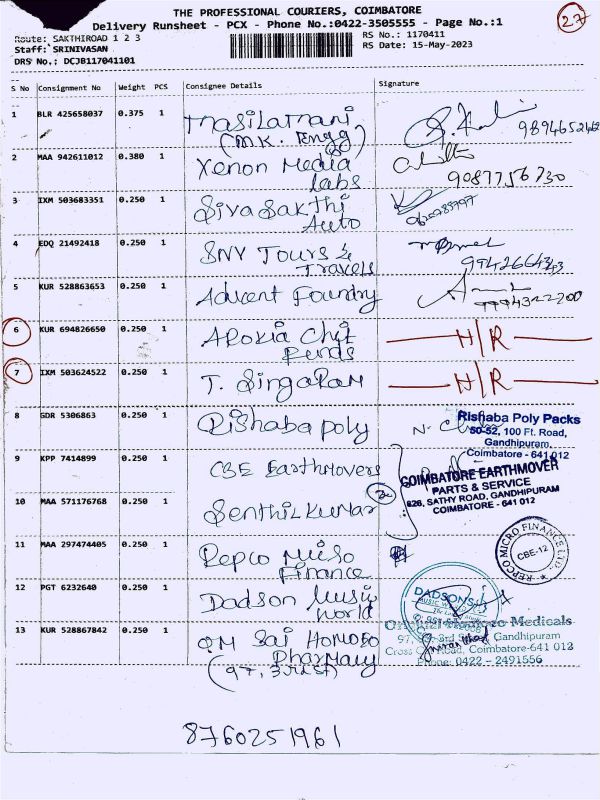 THE PROFESSIONAL COURIERS, COIMBATORE
27
Delivery Runsheet - PCX - Phone No.:0422-3505555 - Page No.:1
Route: SAKTHIROAD 1 2 3
RS No.: 1170411
Staff: SRINIVASAN
RS Date: 15-May-2023
DRS No.: DCJB117041101
S No Consignment No Weight PCS Consignee Details Signature
1 BLR 425658037 0.375 1 Masilamani
(M.K. Engg)
2 MAA 942611012 0.380 1 Xenon Media
labs
9087756730
3 IXM 503683351 0.250 1 Sivasakthi
Auto
4 EDQ 21492418 0.250 1 SNV Tours &
Travels
5 KUR 528863653 0.250 1 Advent Foundry
6 KUR 694826650 0.250 1 Arokia Chit
Funds
H/R
7 IXM 503624522 0.250 1 T. Singaram
H/R
8 GDR 5306863 0.250 1 Rishaba poly
Rishaba Poly Packs
50-52, 100 Ft. Road,
Gandhipuram,
Coimbatore - 641 012
9 KPP 7414899 0.250 1 CBE Earthmovers
COIMBATORE EARTHMOVER
PARTS & SERVICE
826, SATHY ROAD, GANDHIPURAM
COIMBATORE - 641 012
10 MAA 571176768 0.250 1 Senthilkumar
11 MAA 297474405 0.250 1 Repco Micro
Finance
REPCO MICRO FINANCE LTD.
CBE-12
12 PGT 6232640 0.250 1 Dadson Music
World
DADSONS
MUSIC WORLD
13 KUR 528867842 0.250 1 OM Sai Homoeo
Pharmacy
(97, 3rd St)
Medicals
Gandhipuram
Cross Cut Road, Coimbatore-641 012
Phone: 0422 - 2491556
8760251961